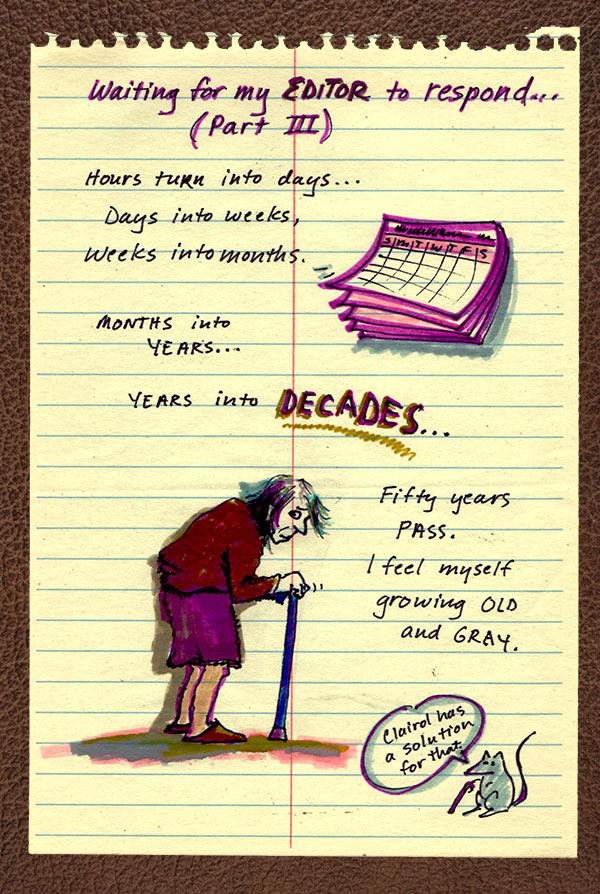 Waiting for my EDITOR to respond...
(Part III)
Hours turn into days...
Days into weeks,
Weeks into months.
S M T W T F S
MONTHS into
YEARS...
YEARS into DECADES...
Fifty years
PASS.
I feel myself
growing OLD
and GRAY.
Clairol has
a solution
for that.